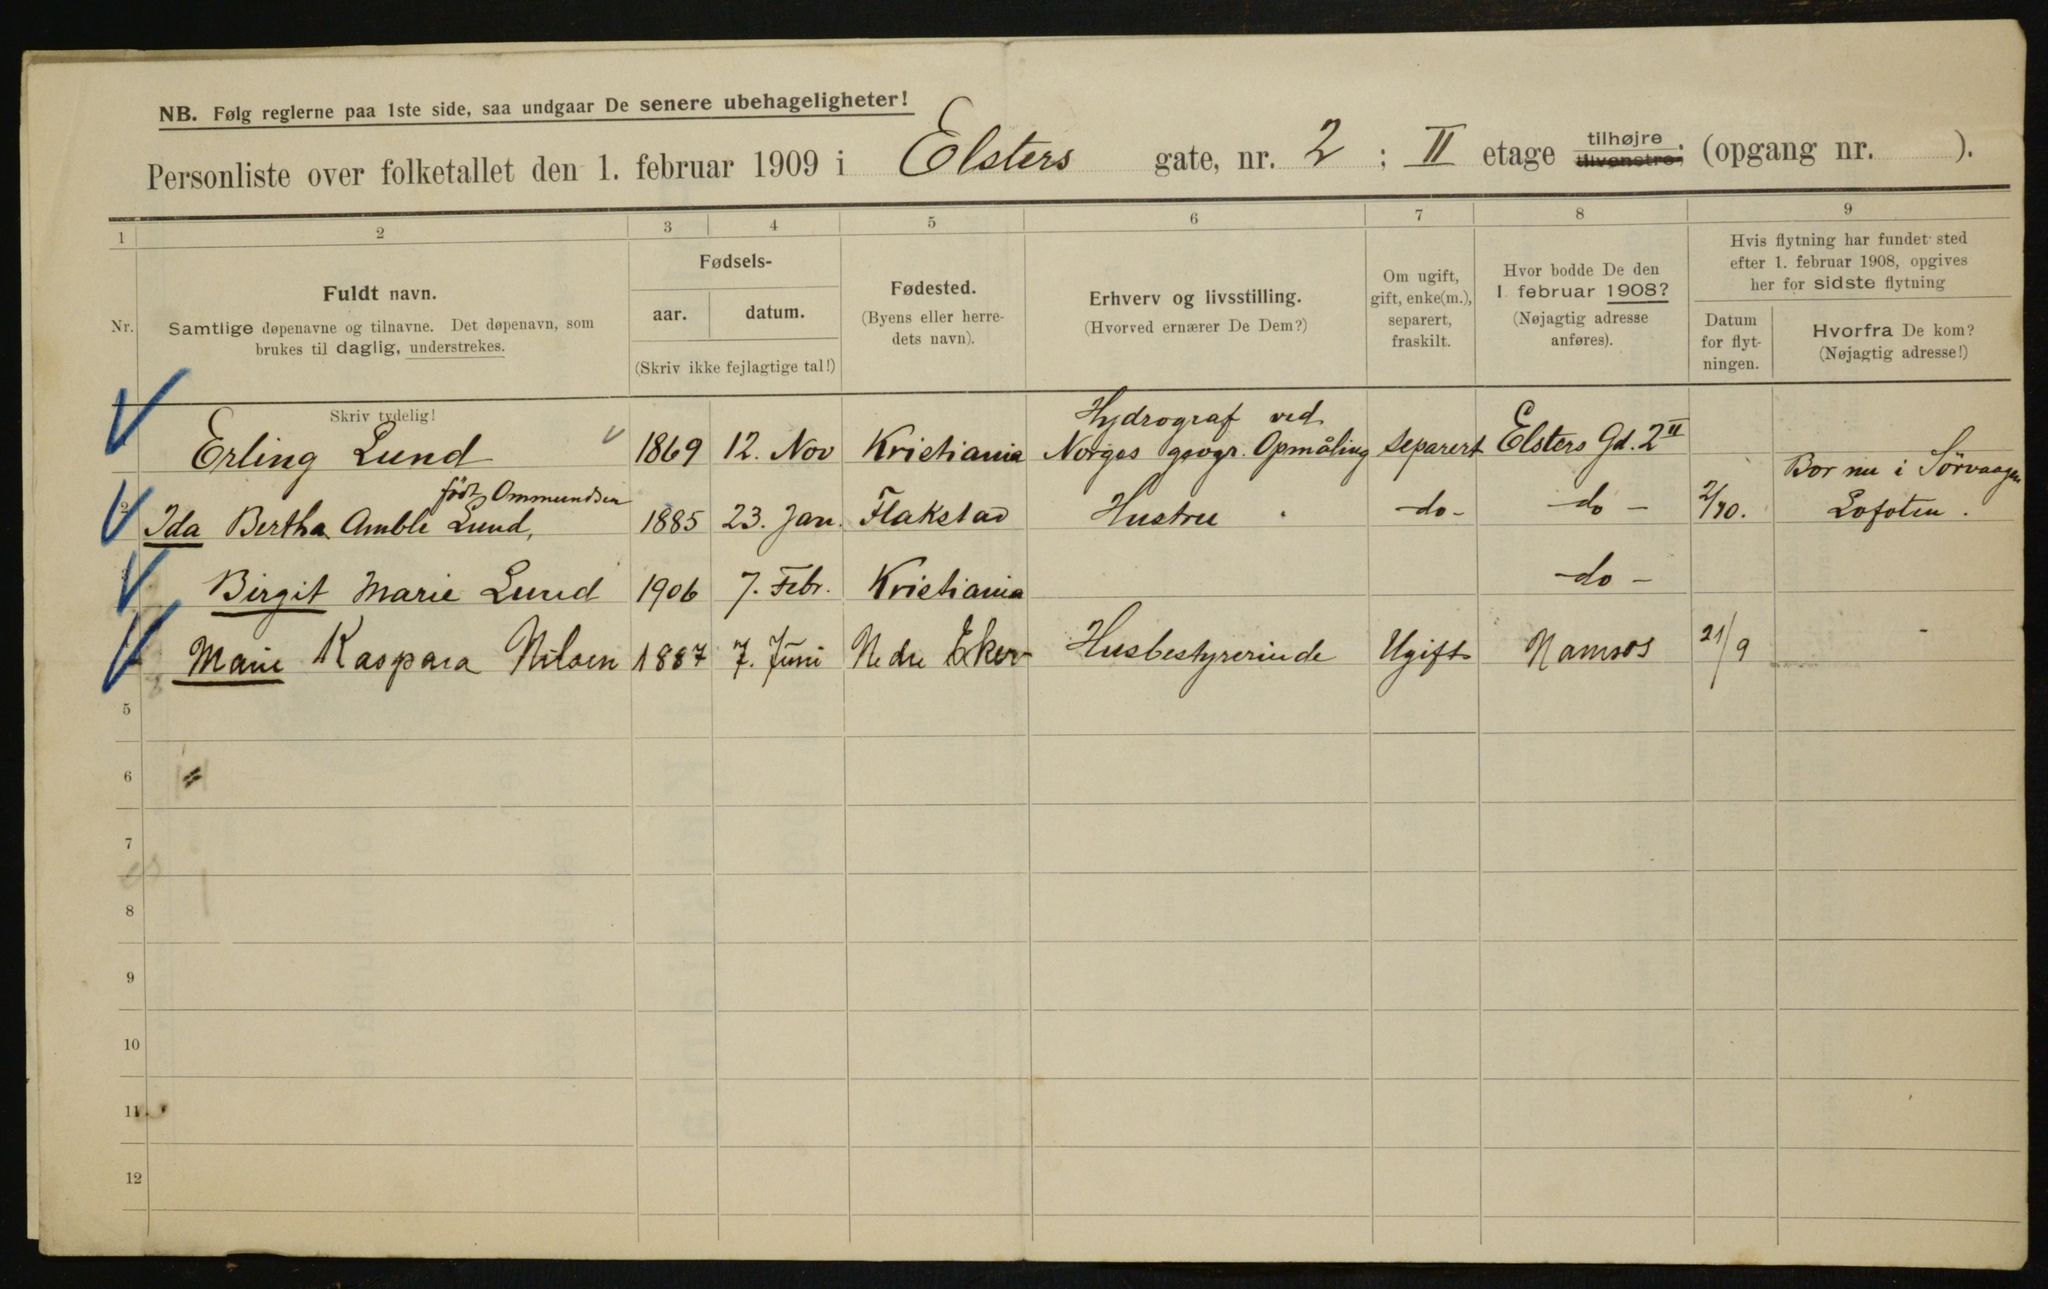 NB. Følg reglerne paa 1ste side, saa undgaar De senere ubehageligheter!
Personliste over folketallet den 1. februar 1909 i Elsters gate, nr. 2 ; II etage tilhøjre. tilvenstre; (opgang nr. ).
1 2 3 4 5 6 7 8 9
Nr.
Fuldt navn.
Samtlige døpenavne og tilnavne. Det døpenavn, som
brukes til daglig, understrekes.
Fødsels-
aar. datum.
(Skriv ikke fejlagtige tal!)
Fødested.
(Byens eller herre-
dets navn).
Erhverv og livsstilling.
(Hvorved ernærer De Dem?)
Om ugift,
gift, enke(m.),
separert,
fraskilt.
Hvor bodde De den
1 februar 1908?
(Nøjagtig adresse
anføres).
Hvis flytning har fundet sted
efter 1. februar 1908, opgives
her for sidste flytning
Datum
for flyt-
ningen.
Hvorfra De kom?
(Nøjagtig adresse!)
Skriv tydelig!
Hydrograf ved
Erling Lund 1869 12. Nov Kristiania Norges geogr. Opmåling separert Elsters Gd. 2 II
født Ommundsen Bor nu i Sörvaagen
2 Ida Bertha Amble Lund, 1885 23. Jan. Flakstad Hustru do - do - 2/10. Lofoten.
3 Birgit Marie Lund 1906 7. Febr. Kristiania do -
Marie Kaspara Nilsen 1887 7. Juni Nedre Eker Husbestyrerinde Ugift Namsos 21/9 -
5
6 "
7
8
9
10
11
12